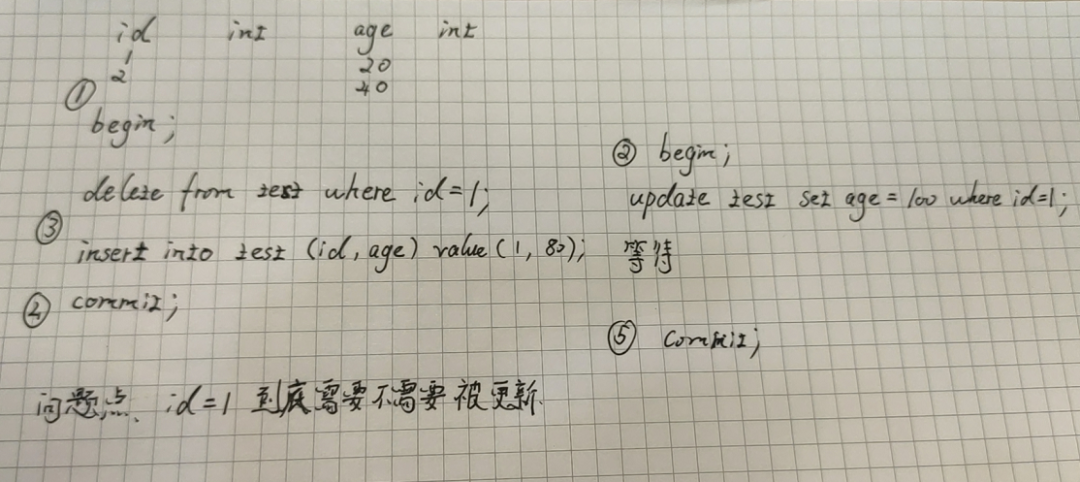 id int age int
1 20
2 40
①
begin;
② begin;
delete from test where id=1;
update test set age=100 where id=1;
③
insert into test (id, age) value (1, 80);
等待
④ commit;
⑤ commit;
问题点、id=1 到底需要不需要被更新